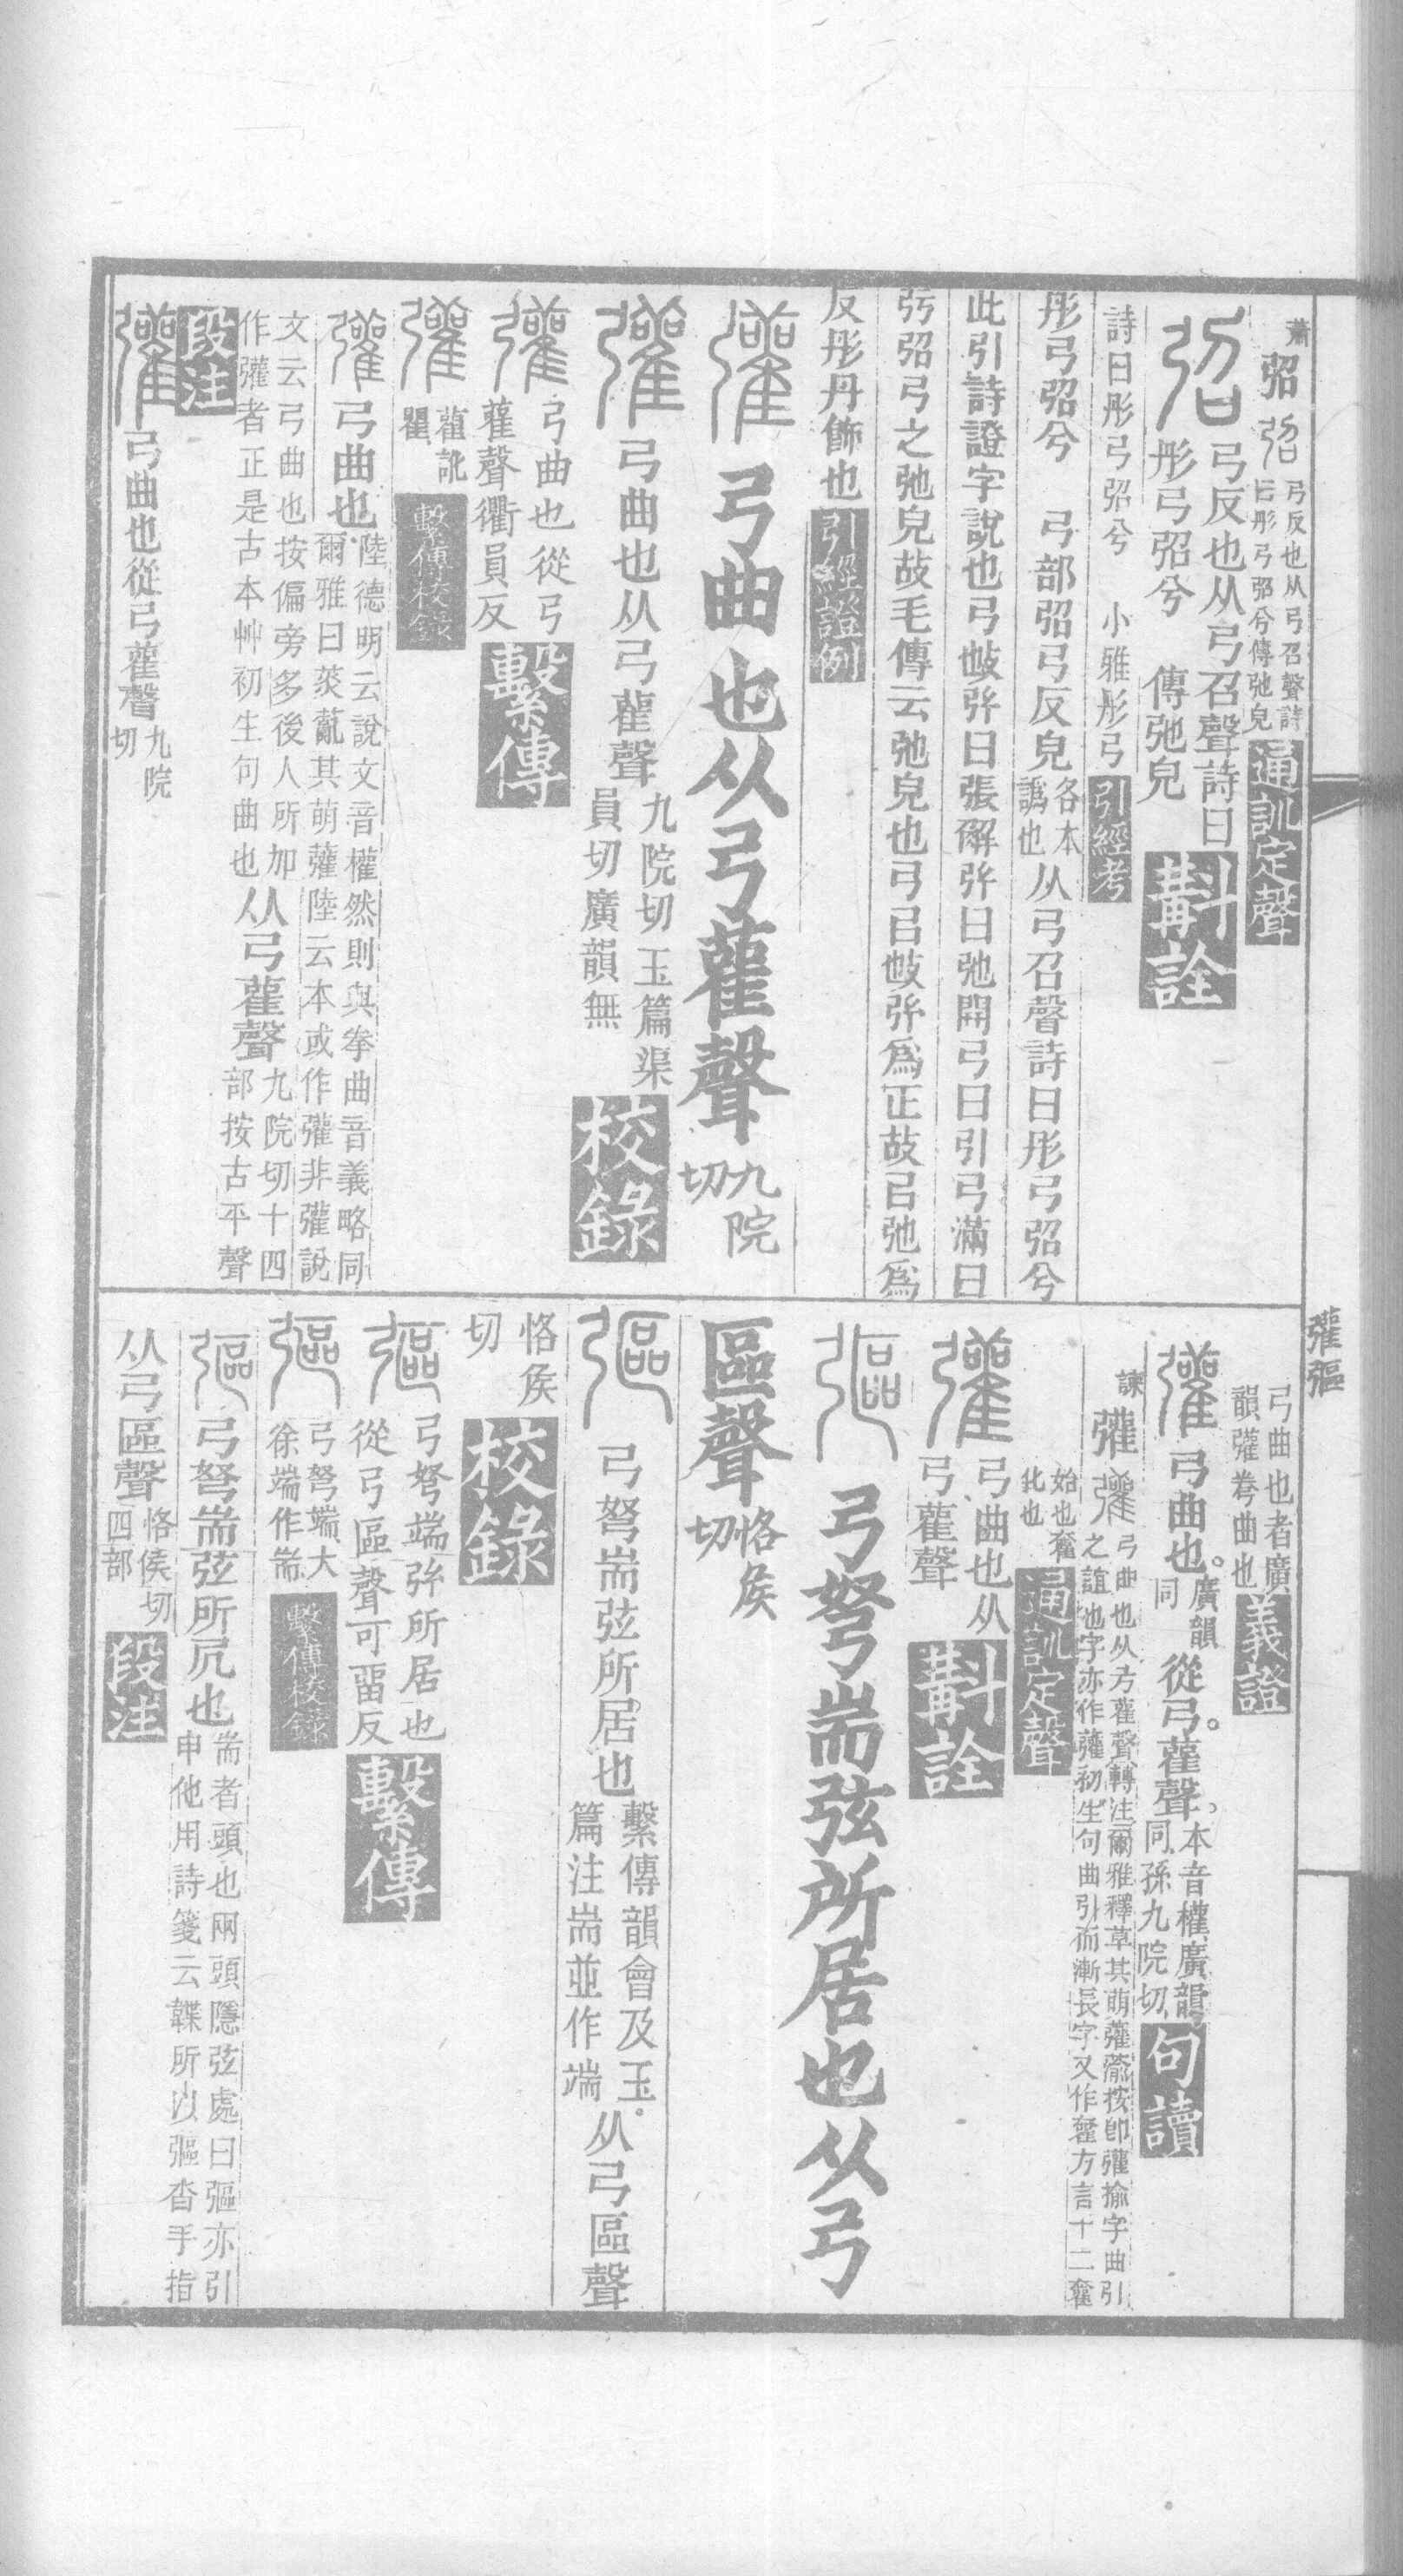 蕭弨弨弓反也从弓召聲詩曰彤弓弨兮傳弛皃通訓定聲
弨弓反也从弓召聲詩曰彤弓弨兮 傳弛皃斠詮
詩曰彤弓弨兮 小雅彤弓引經考
彤弓弨兮 弓部弨弓反皃各本譌也从弓召聲詩曰彤弓弨兮
此引詩證字說也弓部曰張弓曰弛開弓曰引弓滿曰
弨弓之弛皃故毛傳云弛皃也弓㠯為正故㠯弛為
反彤丹飾也引經證例
彏弓曲也从弓雚聲九院切
彏弓曲也从弓雚聲九院切玉篇渠員切廣韻無校錄
彏弓曲也從弓雚聲衢員反繫傳
雚訛瞿繫傳校錄
弓曲也陸德明云說文音權然則與拳曲音義略同爾雅曰菼薍其萌虇陸云本或作彏非彏說
文云弓曲也按偏旁多後人所加作彏者正是古本艸初生句曲也从弓雚聲九院切十四部按古平聲
段注
弓曲也從弓雚聲九院切
彏彄
弓曲也者廣韻彏弮曲也義證
弓曲也。廣韻同從弓。雚聲。本音權廣韻同孫九院切句讀
諫彏弓曲也从弓雚聲轉注爾雅釋草其萌虇蕍按卽彏揄字曲引之誼也字亦作虇初生句曲引而漸長字又作㼲方言十二㼲
始也㼲化也通訓定聲
弓曲也从弓雚聲斠詮
彄弓弩耑弦所居也从弓
區聲恪矦切
彄弓弩耑弦所居也繫傳韻會及玉篇注耑並作端。从弓區聲
恪矦切校錄
彄弓弩端弦所居也從弓區聲可畱反繫傳
彄弓弩端大徐端作耑繫傳校錄
彄弓弩耑弦所凥也耑者頭也兩頭隱弦處曰彄亦引申他用詩箋云韘所以彄沓手指
从弓區聲恪侯切四部段注